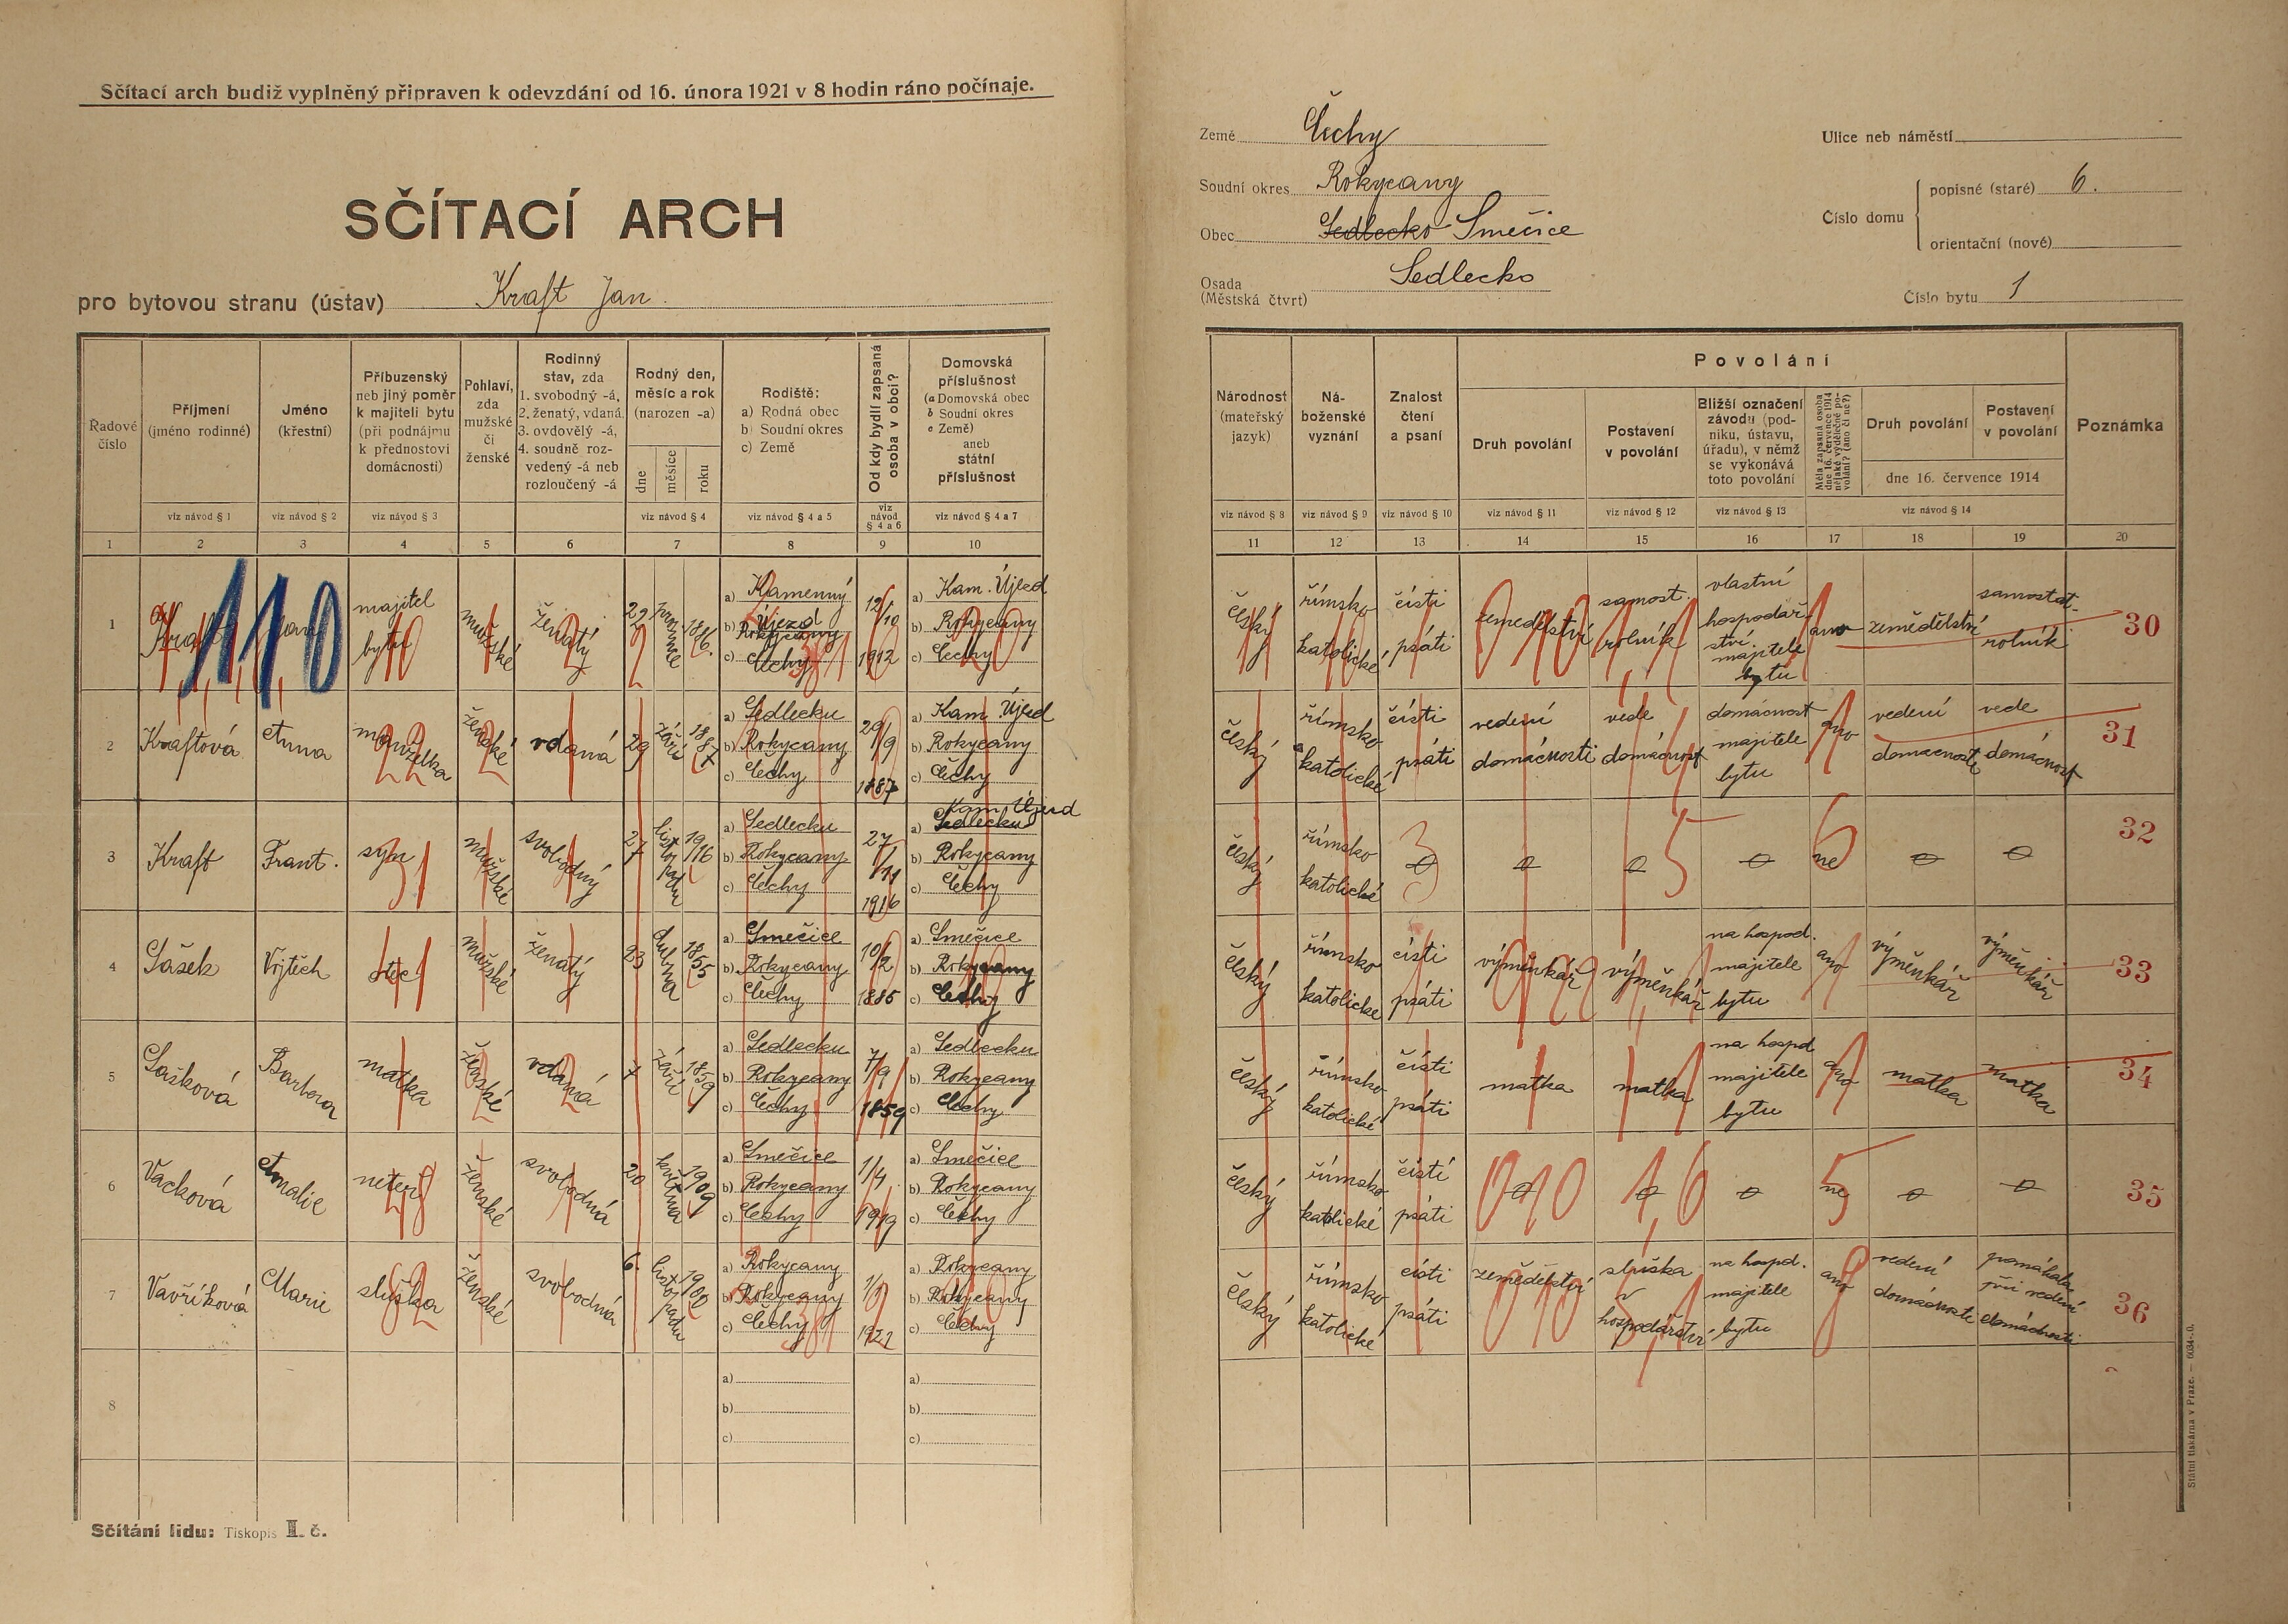 Sčítací arch budiž vyplněný připraven k odevzdání od 16. února 1921 v 8 hodin ráno počínaje.
SČÍTACÍ ARCH
pro bytovou stranu (ústav) Kraft Jan.
Země Čechy
Soudní okres Rokycany
Obec Sedlecko Smečice
Osada (Městská čtvrt) Sedlecko
Ulice neb náměstí
Číslo domu
popisné (staré) 6.
orientační (nové)
Číslo bytu 1
Řadové číslo
Příjmení (jméno rodinné)
Jméno (křestní)
Příbuzenský neb jiný poměr k majiteli bytu (při podnájmu k přednostovi domácnosti)
Pohlaví, zda mužské či ženské
Rodinný stav, zda 1. svobodný -á, 2. ženatý, vdaná, 3. ovdovělý -á, 4. soudně rozvedený -á neb rozloučený -á
Rodný den, měsíc a rok (narozen -a)
dne měsíce roku
Rodiště: a) Rodná obec b) Soudní okres c) Země
Od kdy bydlí zapsaná osoba v obci?
Domovská příslušnost (a Domovská obec b Soudní okres c Země) aneb státní příslušnost
viz návod § 1 viz návod § 2 viz návod § 3 viz návod § 4 viz návod § 4 a 5 viz návod § 4 a 6 viz návod § 4 a 7
1 2 3 4 5 6 7 8 9 10
Národnost (mateřský jazyk)
Náboženské vyznání
Znalost čtení a psaní
Povolání
Druh povolání
Postavení v povolání
Bližší označení závodu (podniku, ústavu, úřadu), v němž se vykonává toto povolání
Měla zapsaná osoba dne 16. července 1914 nějaké výdělečné povolání? (ano či ne?)
Druh povolání
Postavení v povolání
dne 16. července 1914
Poznámka
viz návod § 8 viz návod § 9 viz návod § 10 viz návod § 11 viz návod § 12 viz návod § 13 viz návod § 14
11 12 13 14 15 16 17 18 19 20
1 Kraft Jan majitel bytu mužské ženatý 22 1886. a) Kamenný Újezd b) Rokycany c) Čechy 12/10 1912 a) Kam. Újezd b) Rokycany c) Čechy
český římsko katolické čísti psáti zemědělství samost. rolník vlastní hospodářství majitele bytu ano zemědělství samostat. rolník 30
2 Kraftová Anna manželka ženské vdaná 29 září 1887 a) Sedlecku b) Rokycany c) Čechy 29/9 1887 a) Kam. Újezd b) Rokycany c) Čechy
český římsko katolické čísti psáti vedení domácnosti vede domácnost domácnost majitele bytu ano vedení domácnosti vede domácnost 31
3 Kraft Frant. syn mužské svobodný 27 listopadu 1916 a) Sedlecku b) Rokycany c) Čechy 27/11 1916 a) Sedlecku Kam. Újezd b) Rokycany c) Čechy
český římsko katolické 0 0 0 0 ne 0 0 32
4 Sašek Vojtěch otec mužské ženatý 23 dubna 1855 a) Smečice b) Rokycany c) Čechy 10/2 1885 a) Smečice b) Rokycany c) Čechy
český římsko katolické čísti psáti výměnkář výměnkář na hospod. majitele bytu ano výměnkář výměnkář 33
5 Sašková Barbora matka ženské vdaná 7 září 1859 a) Sedlecku b) Rokycany c) Čechy 7/9 1859 a) Sedlecku b) Rokycany c) Čechy
český římsko katolické čísti psáti matka matka na hospd majitele bytu ano matka matka 34
6 Vacková Amalie neteř ženské svobodná 20 května 1909 a) Smečice b) Rokycany c) Čechy 1/4 1919 a) Smečice b) Rokycany c) Čechy
český římsko katolické čísti psáti 0 0 0 ne 0 0 35
7 Vavříková Marie služka ženské svobodná 6. listopadu 1902 a) Rokycany b) Rokycany c) Čechy 1/1 1921 a) Rokycany b) Rokycany c) Čechy
český římsko katolické čísti psáti zemědělství služka v hospodářství na hospd. majitele bytu ano vedení domácnosti pomáhala při vedení domácnosti 36
8 a) b) c) a) b) c)
Sčítání lidu: Tiskopis I. č.
Státní tiskárna v Praze. — 6034-0.